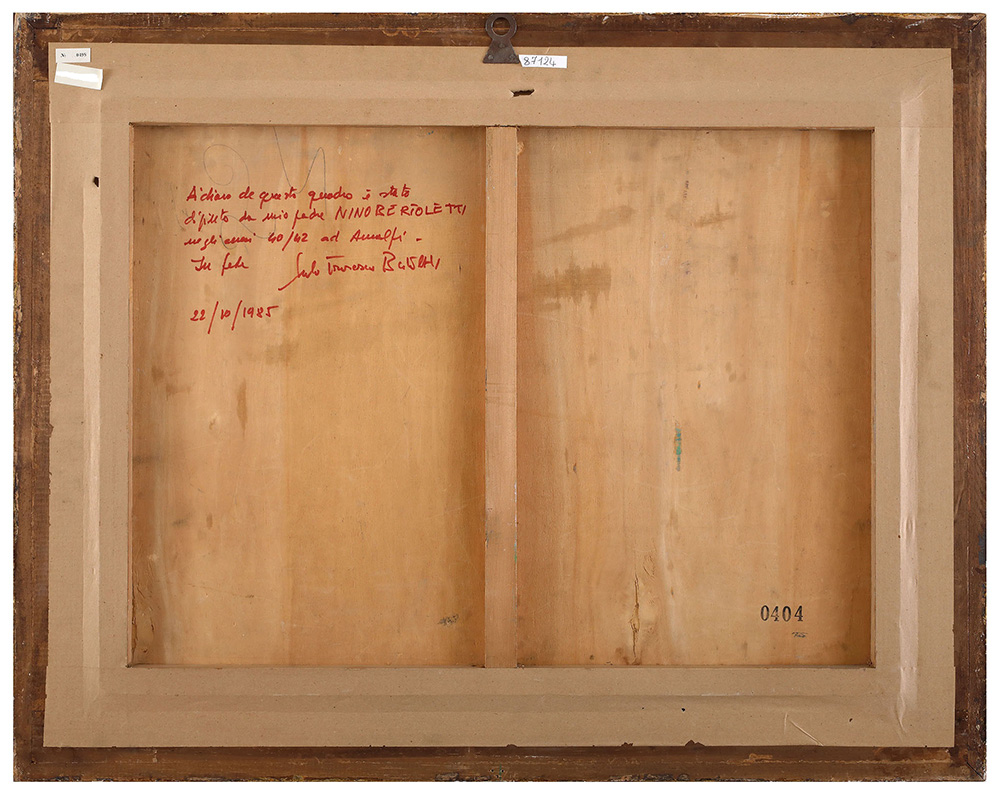 87124
Dichiaro che questo quadro è stato
dipinto da mio padre NINO BERTOLETTI
negli anni 40/42 ad Amalfi -
In fede
22/10/1985
0404